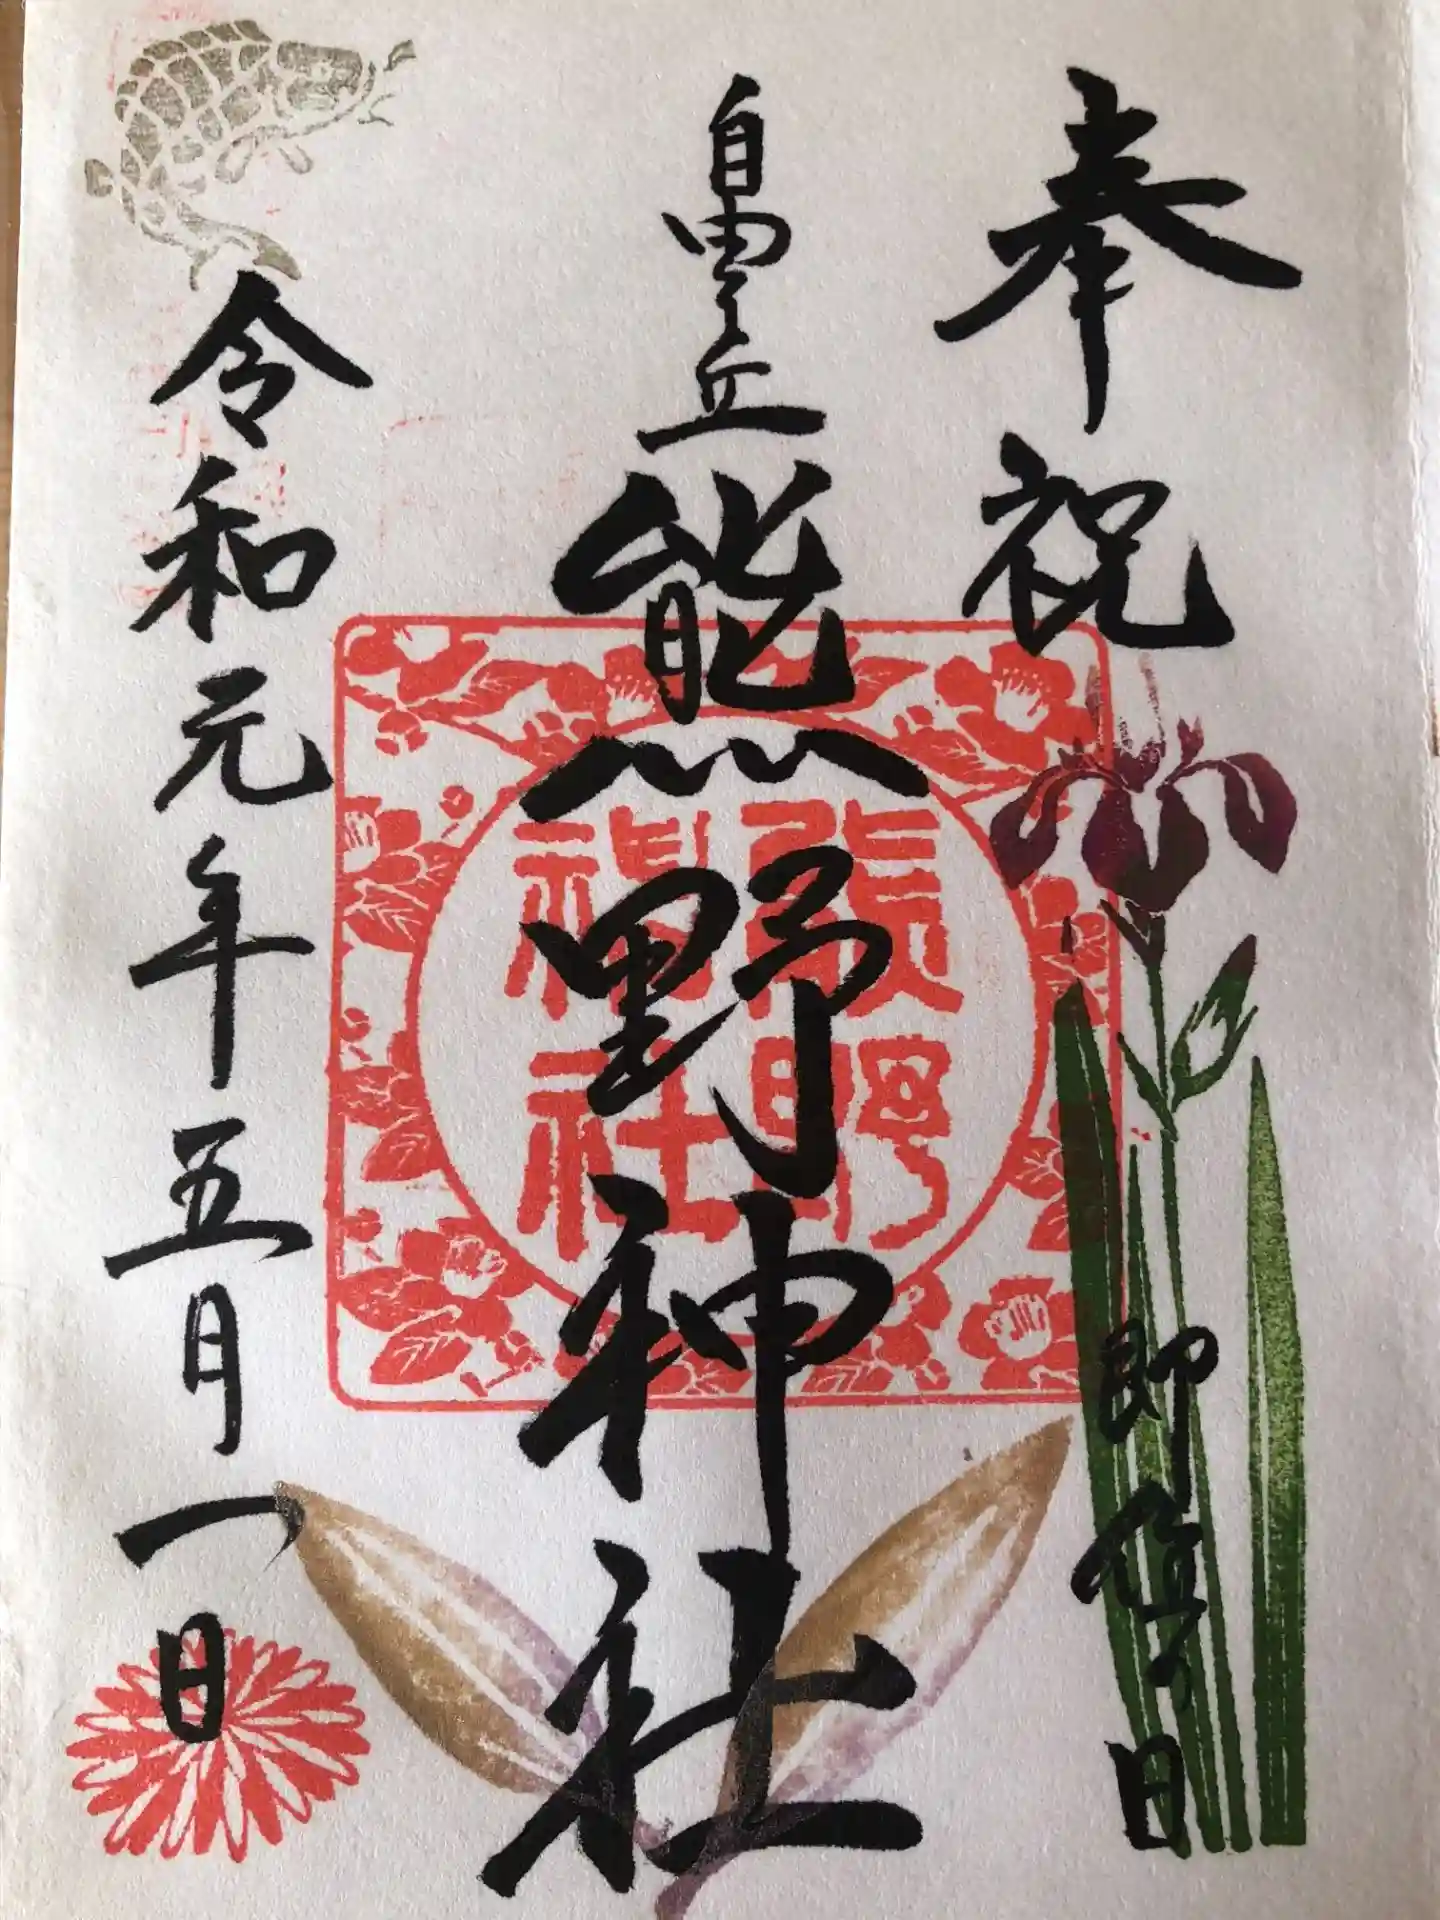 奉祝
即位の日
自由が丘
熊野神社
熊野
神社
令和元年五月一日